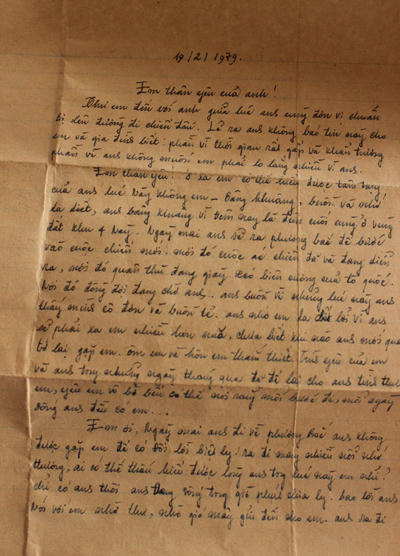 19/2/1979.
Em thân yêu của anh!
Thư em đến với anh giữa lúc anh cũng đón vì chuẩn
bị lên đường đi chiến đấu. Lẽ ra anh không báo tin này cho
em và gia đình biết: phần vì thời gian rất gấp và khẩn trương
phần vì anh không muốn em phải lo lắng nhiều vì anh.
Em thân yêu! Ở xa em có thể hiểu được tâm trạng
của anh lúc này không em - bâng khuâng, buồn và nhớ
da diết, anh bâng khuâng vì đêm nay là đêm cuối cùng ở vùng
đất khu 4 này. Ngày mai anh sẽ ra phương bắc để bước
vào cuộc chiến mới. nơi đó cuộc ác chiến đã và đang diễn
ra, nơi đó quân thù đang giày xéo biên cương của tổ quốc.
Nơi đó đồng đội đang chờ anh. anh buồn vì những lúc này anh
thấy mình cô đơn và buồn tẻ. anh nhớ em da diết bởi vì anh
sẽ phải xa em nhiều hơn nữa, chưa biết khi nào anh mới quay
trở lại gặp em. ôm em và hôn em tha thiết. Tình yêu của em
và anh trong những ngày tháng qua đã để lại cho anh tình thương
em, yêu em vô bờ bến có thể nói rằng mỗi bước đi, mỗi ngày
sống anh đều có em...
Em ơi, Ngày mai anh đi về phương bắc anh không
được gặp em để có đôi lời biệt ly. ra đi mang nhiều nỗi nhớ
thương, ai có thể thấu hiểu được lòng anh trong lúc này em nhỉ?
chỉ có anh thôi anh đang sống trong giờ phút chia ly. bao lời anh
nói với em nhờ thư, nhờ gió mây gửi đến cho em. anh ra đi